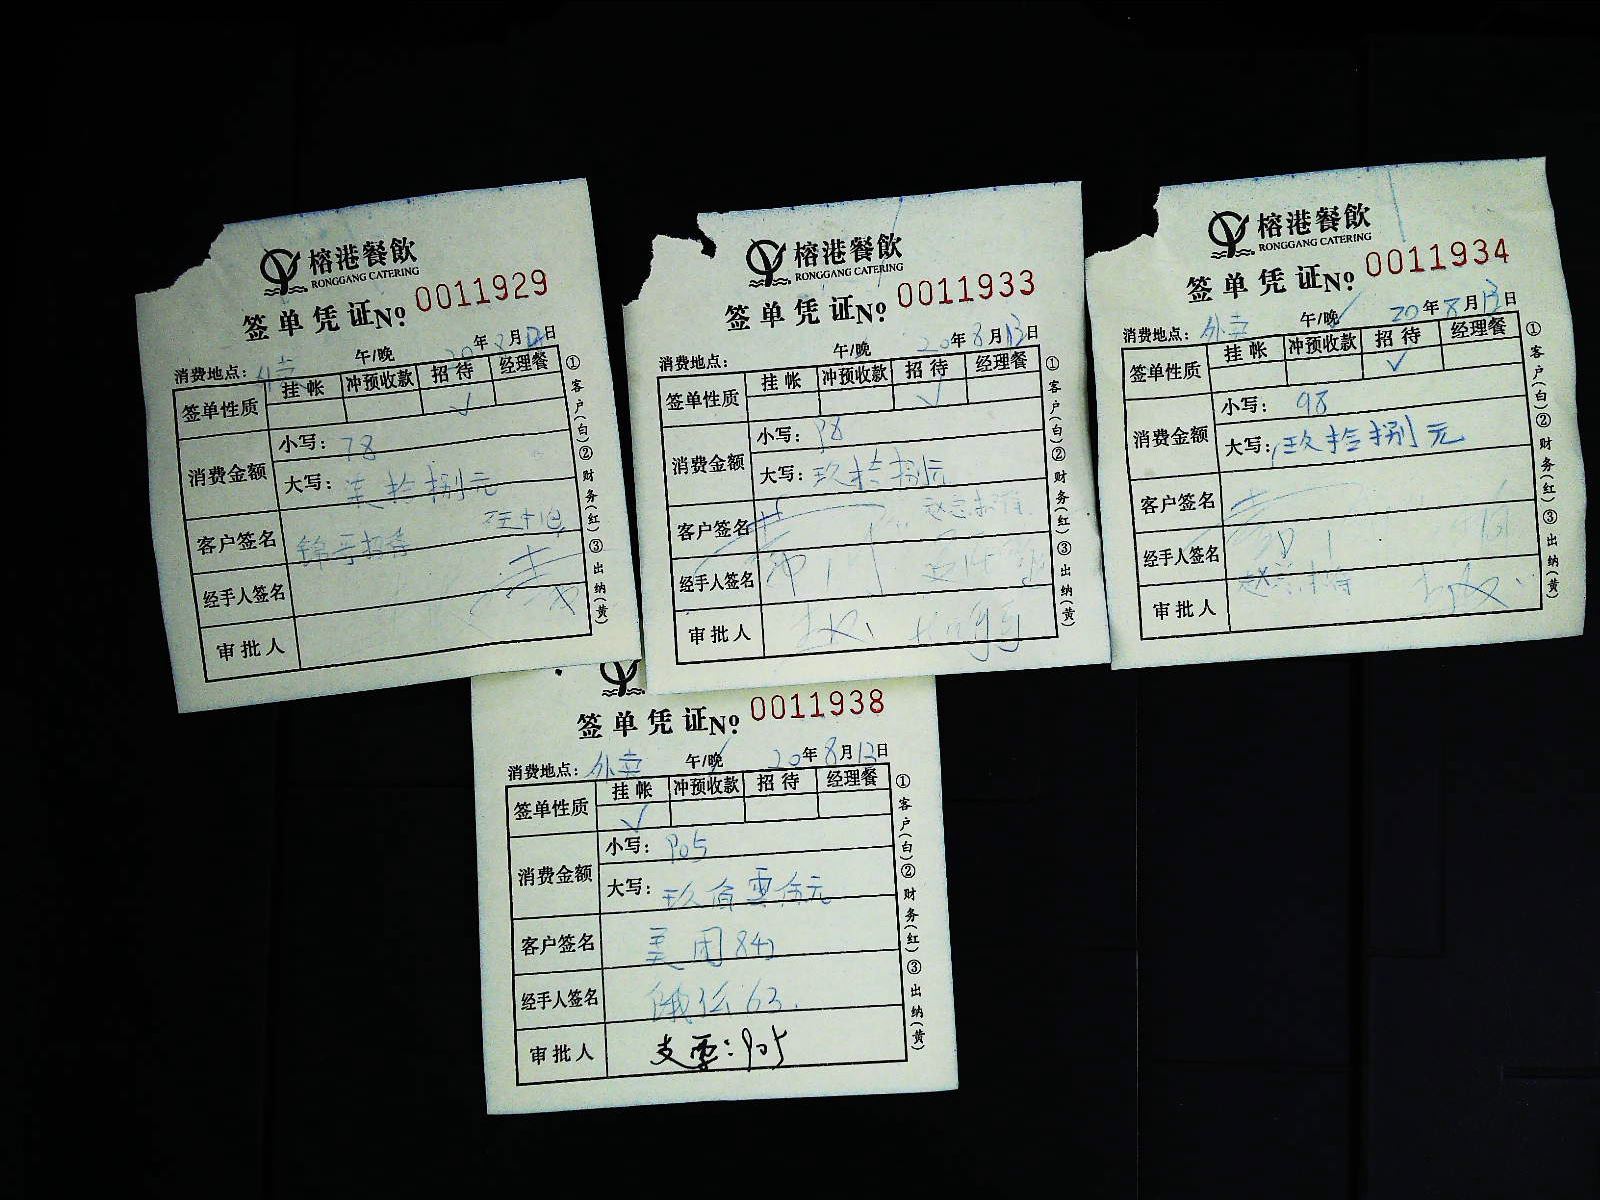 榕港餐飲
RONGGANG CATERING
签单凭证No 0011929
消费地点：外卖 午/晚 20年8月12日
签单性质 挂帐 冲预收款 招待 经理餐
✓
消费金额 小写：78
大写：柒拾捌元
客户签名
经手人签名
审批人
①客户(白)②财务(红)③出纳(黄)
榕港餐飲
RONGGANG CATERING
签单凭证No 0011933
消费地点： 午/晚 20年8月13日
签单性质 挂帐 冲预收款 招待 经理餐
✓
消费金额 小写：98
大写：玖拾捌元
客户签名
经手人签名
审批人
①客户(白)②财务(红)③出纳(黄)
榕港餐飲
RONGGANG CATERING
签单凭证No 0011934
消费地点：外卖 午/晚 20年8月13日
签单性质 挂帐 冲预收款 招待 经理餐
✓
消费金额 小写：98
大写：玖拾捌元
客户签名
经手人签名
审批人
①客户(白)②财务(红)③出纳(黄)
签单凭证No 0011938
消费地点：外卖 午/晚 20年8月13日
签单性质 挂帐 冲预收款 招待 经理餐
✓
消费金额 小写：905
大写：玖佰零伍元
客户签名 美团842
经手人签名 63.
审批人 支票：905
①客户(白)②财务(红)③出纳(黄)